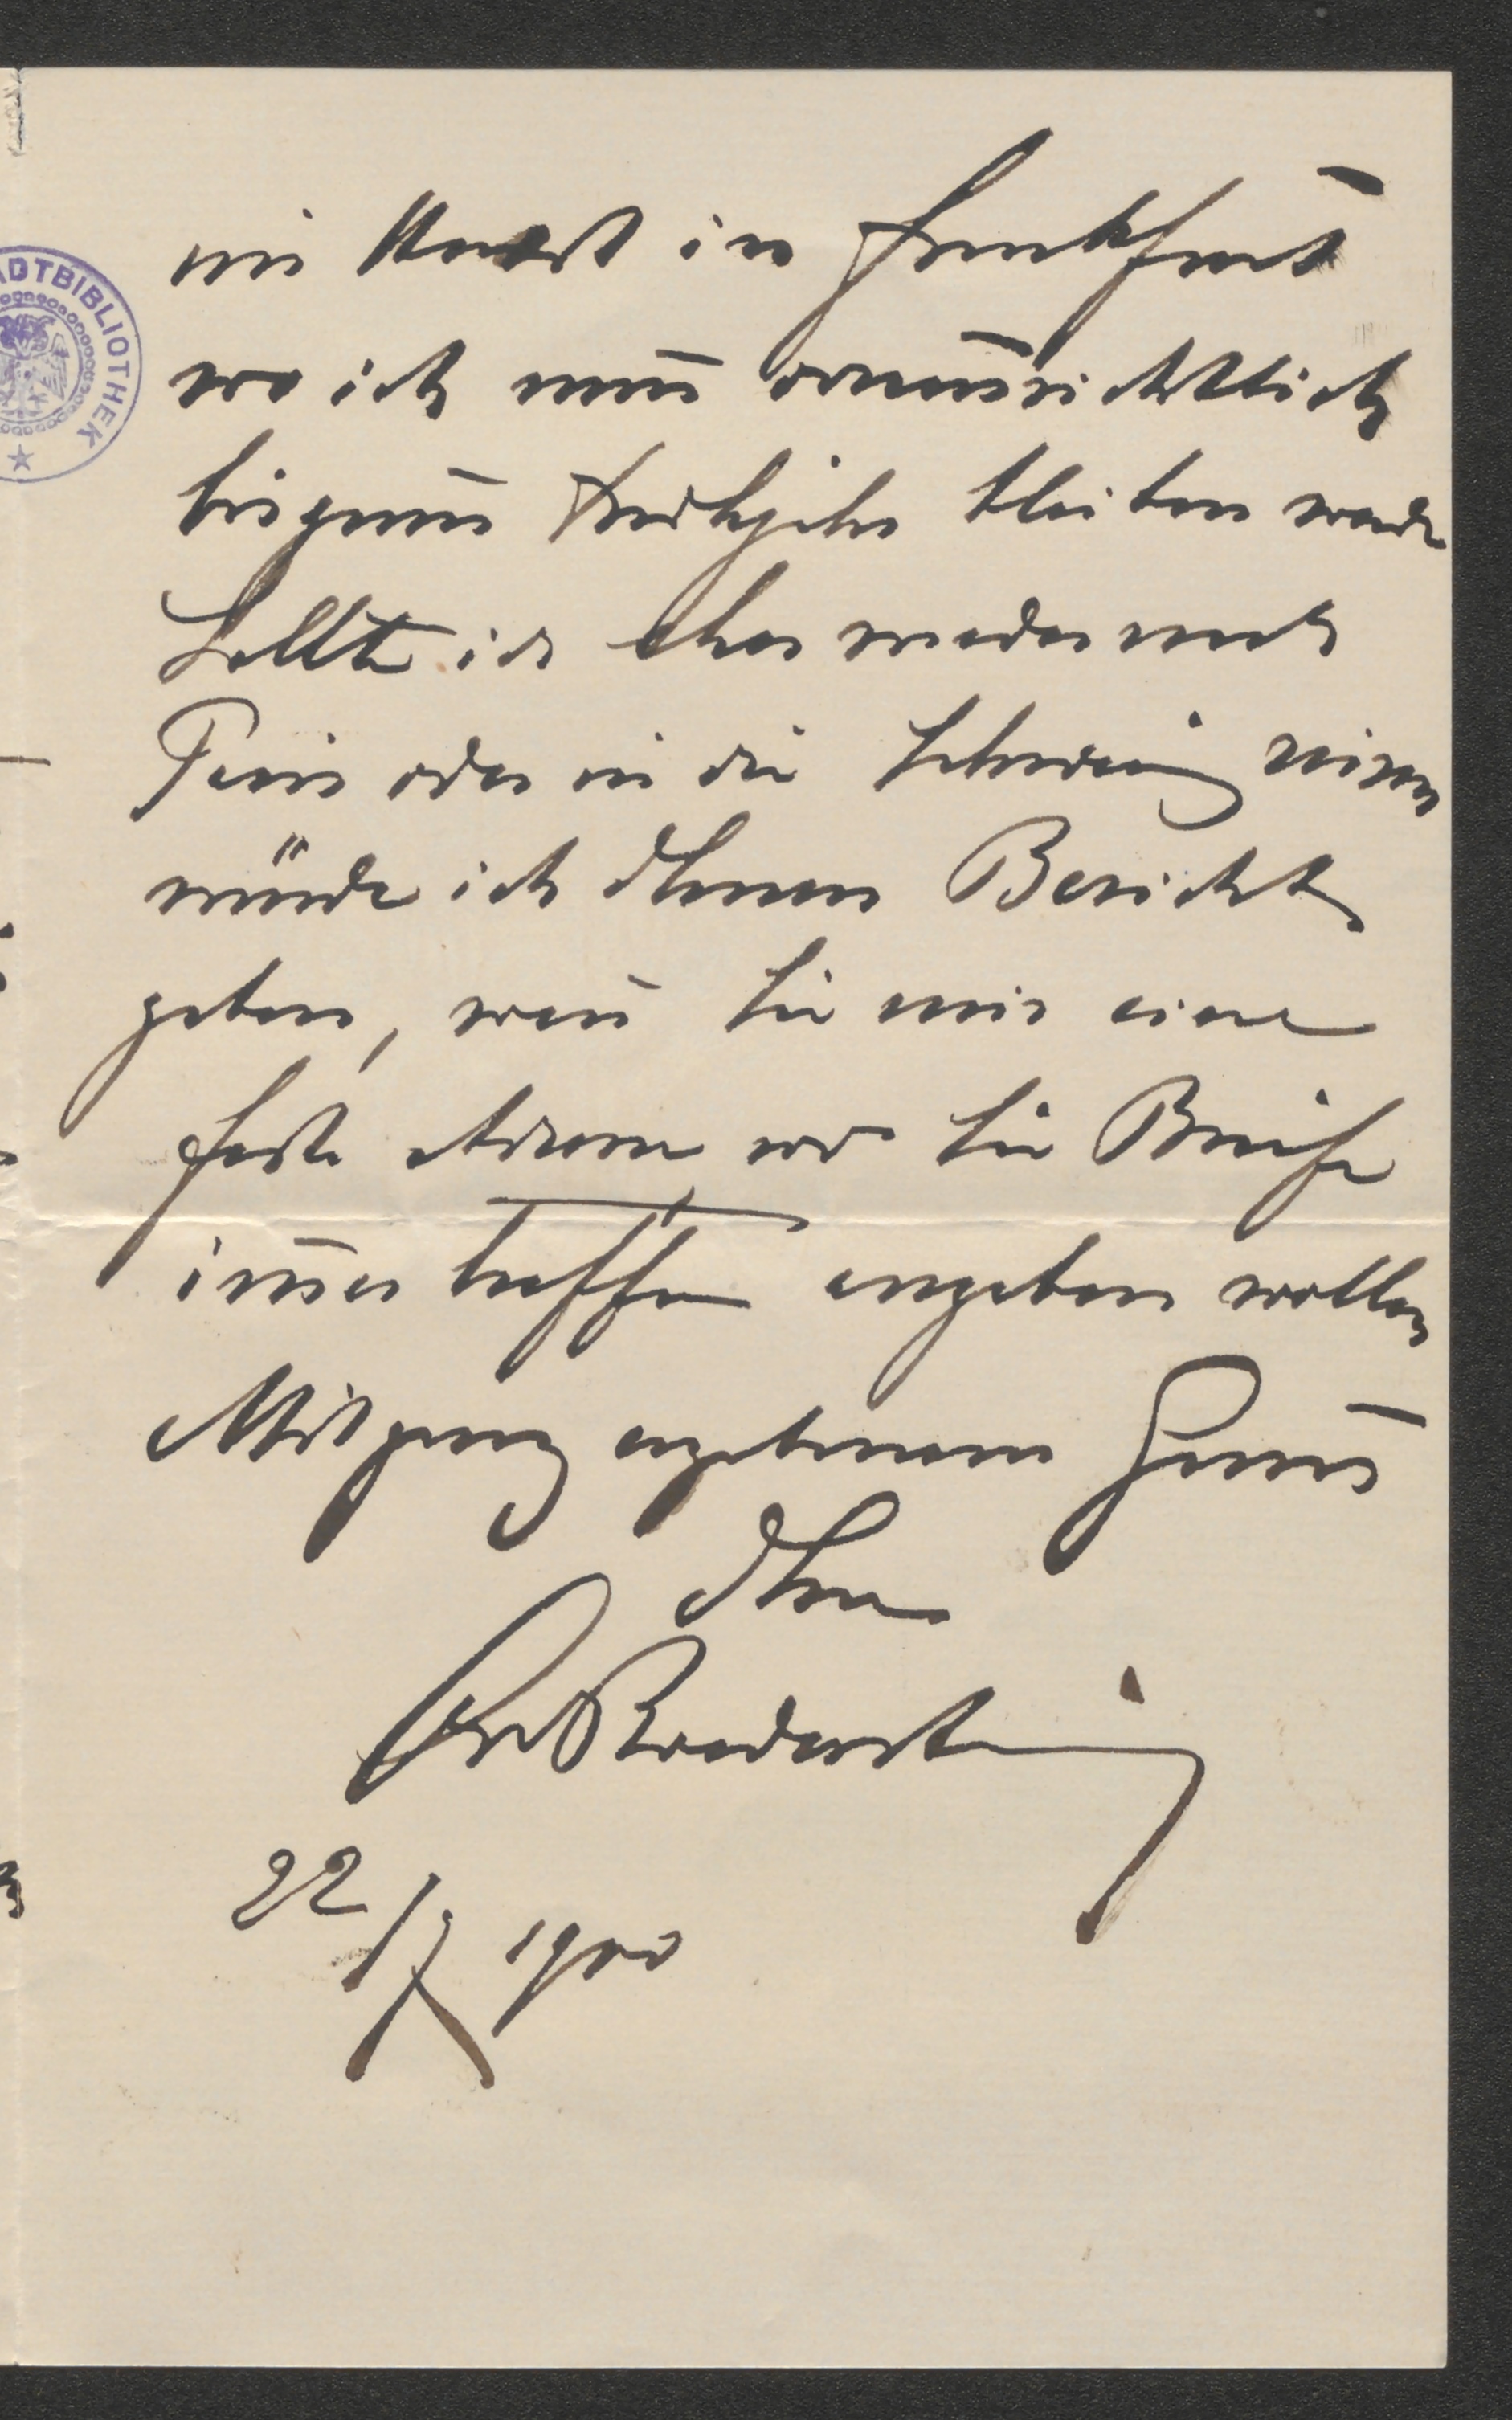 im Herbst in Frankfurt
wo ich nun voraussichtlich
bis zum Frühjahr bleiben werde
Sollte ich eher wieder nach
Paris oder in die Schweiz reisen
würde ich Ihnen Bericht
geben, wenn Sie mir eine
feste Adresse wo Sie Briefe
immer treffen angeben wollen
Mit ganz ergebenem Gruss
Ihr
22/X 1900
ADTBIBLIOTHEK